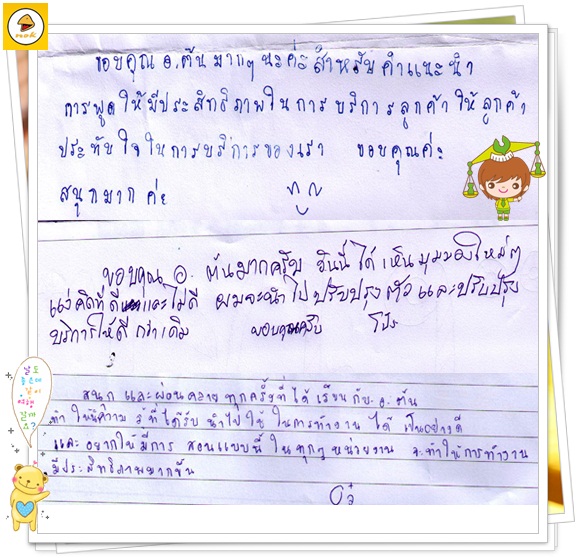 ขอบคุณ อ.ต้น มากๆ นะค่ะ สำหรับ คำแนะนำ
การพูด ให้มีประสิทธิภาพใน การ บริการ ลูกค้า ให้ ลูกค้า
ประทับ ใจ ใน การ บริการ ของเรา ขอบคุณค่ะ
สนุกมาก ค่ะ
ขอบคุณ อ. ต้นมากครับ วันนี้ ได้ เห็น มุมมองใหม่ๆ
แง่คิดที่ดี และไม่ดี ผมจะนำ ไป ปรับปรุง ตัว และปรับปรุง
บริการให้ดี กว่าเดิม ขอบคุณครับ โป่ง
สนุก และผ่อนคลาย ทุกครั้งที่ ได้ เรียน กับ อ. ต้น
ทำ ให้มีความ รู้ที่ได้รับ นำไป ใช้ ในการทำงาน ได้ เป็นอย่างดี
และ อยากให้ มีการ สอนแบบนี้ ในทุกๆ หน่วยงาน จะทำให้การทำงาน
มีประสิทธิภาพมากขึ้น